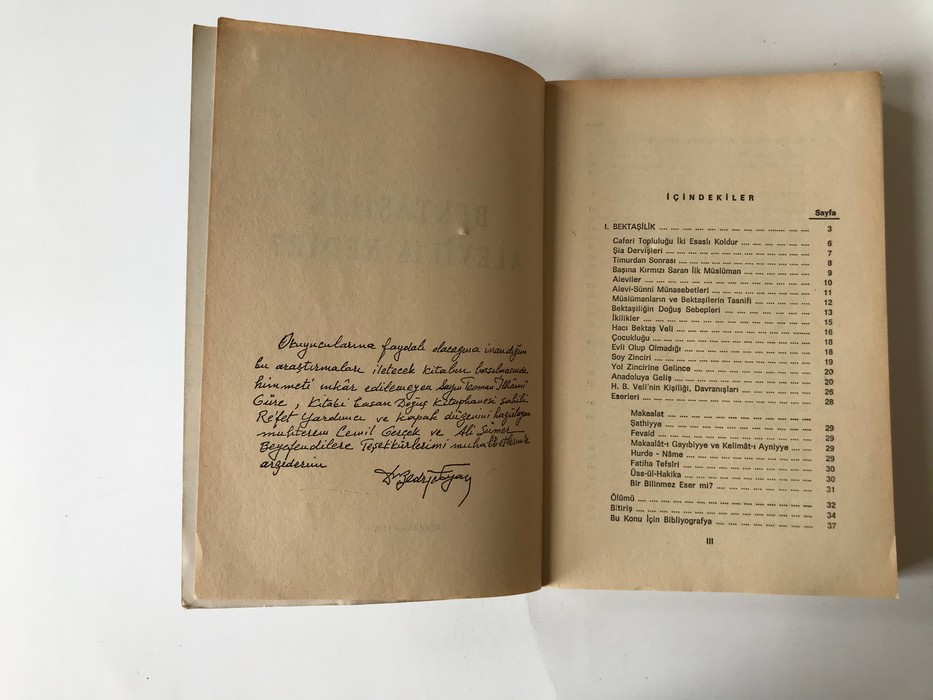 Okuyucularına faydalı olacağına inandığım
bu araştırmaları iletecek kitabın basılmasında
himmeti inkâr edilemeyen Sayın Teoman İlhami
Güre, Kitabı basan Doğuş Kitaphanesi sahibi
Re'fet Yardımcı ve kapak düzenini hazırlayan
muhterem Cemil Gerçek ve Ali Sümer
Beyefendilere Teşekkürlerimi muhabbetlerimle
arzederim
İÇİNDEKİLER
Sayfa
I. BEKTAŞİLİK .... 3
Caferi Topluluğu İki Esaslı Koldur .... 6
Şia Dervişleri .... 7
Timurdan Sonrası .... 8
Başına Kırmızı Saran İlk Müslüman .... 9
Aleviler .... 10
Alevi-Sünni Münasebetleri .... 11
Müslümanların ve Bektaşilerin Tasnifi .... 12
Bektaşiliğin Doğuş Sebepleri .... 13
İkilikler .... 15
Hacı Bektaş Veli .... 16
Çocukluğu .... 18
Evli Olup Olmadığı .... 18
Soy Zinciri .... 19
Yol Zincirine Gelince .... 20
Anadoluya Geliş .... 20
H. B. Veli'nin Kişiliği, Davranışları .... 26
Eserleri .... 28
Makaalat .... 
Şathiyye .... 29
Fevaid .... 29
Makaalât-ı Gaybiyye ve Kelimât-ı Ayniyye .... 29
Hurde - Nâme .... 29
Fatiha Tefsiri .... 30
Üss-ül-Hakika .... 30
Bir Bilinmez Eser mi? .... 31
Ölümü .... 32
Bitiriş .... 34
Bu Konu İçin Bibliyografya .... 37
III